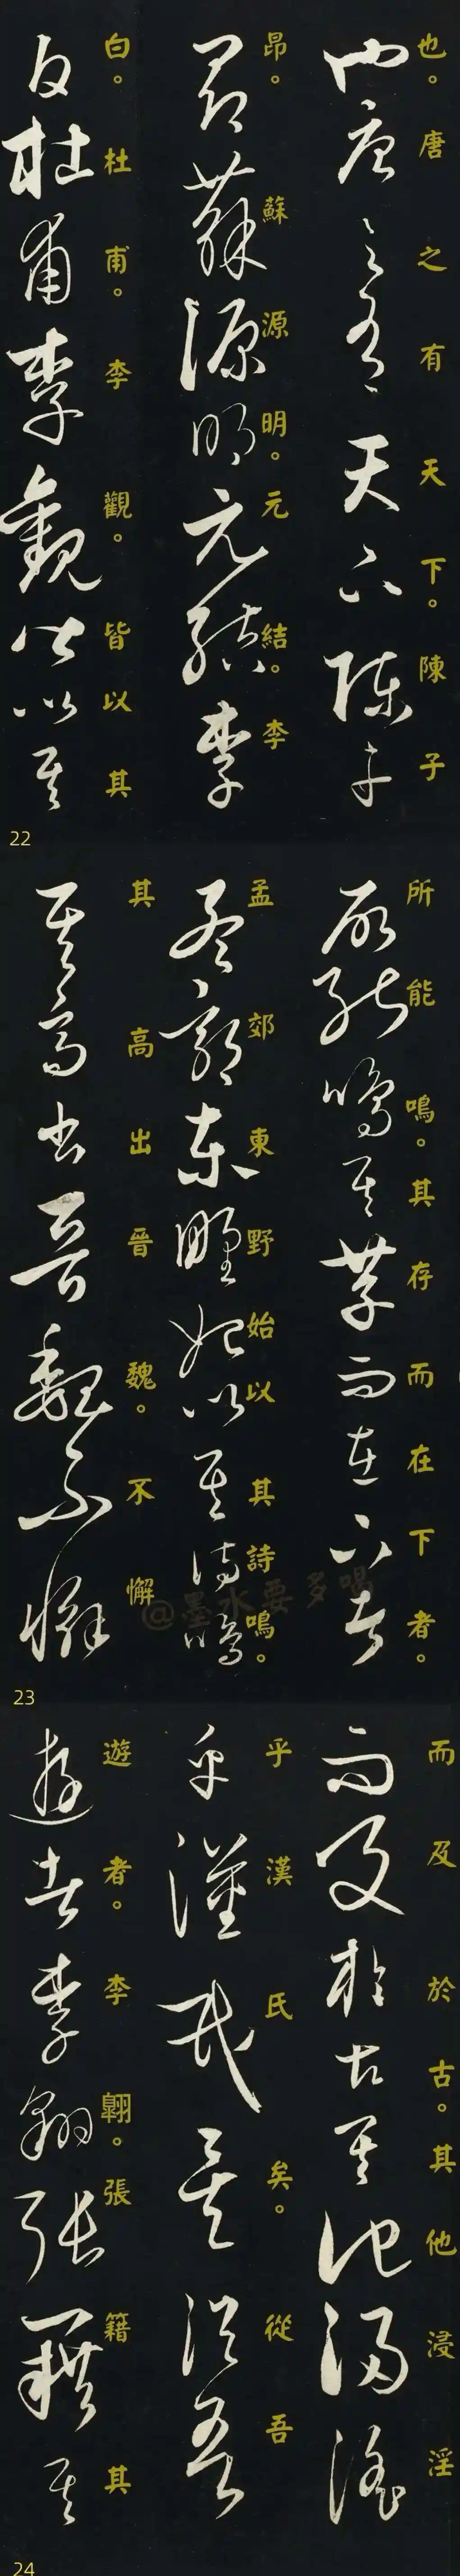 也。唐之有天下。陳子
昂。蘇源明。元結。李
白。杜甫。李觀。皆以其
22
所能鳴。其存而在下者。
孟郊東野始以其詩鳴。
其高出晉魏。不懈
23
@墨水要多喝
而及於古。其他浸淫
乎漢氏矣。從吾
遊者。李翺。張籍其
24